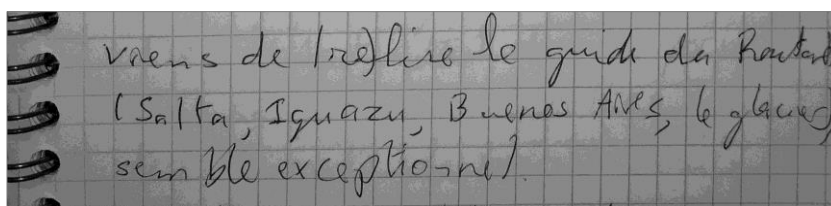 viens de (re)lire le guide du Routard
(Salta, Iguazu, Buenos Aires, le glacier)
semble exceptionnel.